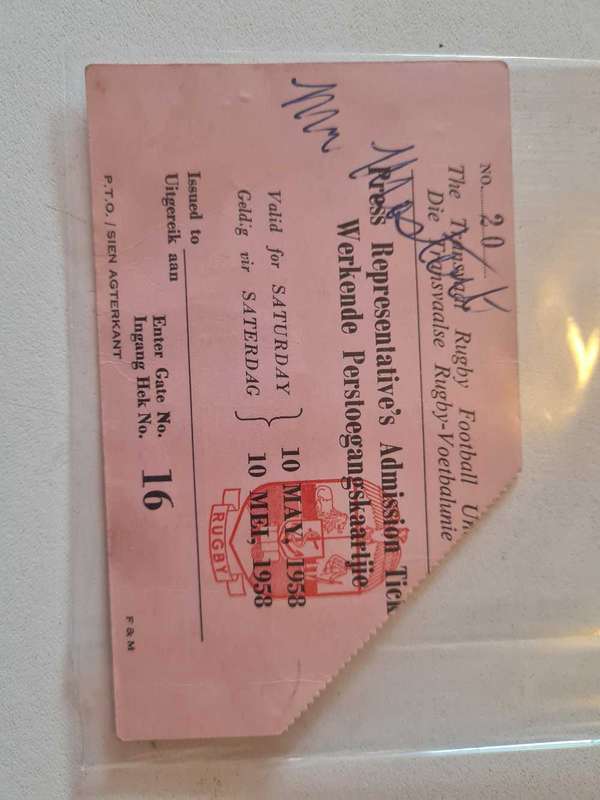 NO. 20
The Transvaal Rugby Football Un
Die Transvaalse Rugby-Voetbalunie
Press Representative's Admission Tick
Werkende Perstoegangskaartjie
Valid for SATURDAY } 10 MAY, 1958
Geldig vir SATERDAG } 10 MEI, 1958
RUGBY
Issued to
Uitgereik aan
Enter Gate No. 16
Ingang Hek No.
P.T.O. / SIEN AGTERKANT
F & M